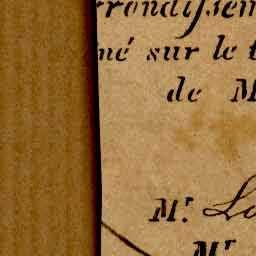 rrondissem
né sur le t
de M
Mr. Lo
Mr